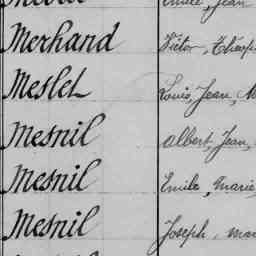 Emile, Jean
Merhand Victor, Théop
Meslet Louis, Jean, M
Mesnil Albert, Jean,
Mesnil Emile, Marie,
Mesnil Joseph, Mar